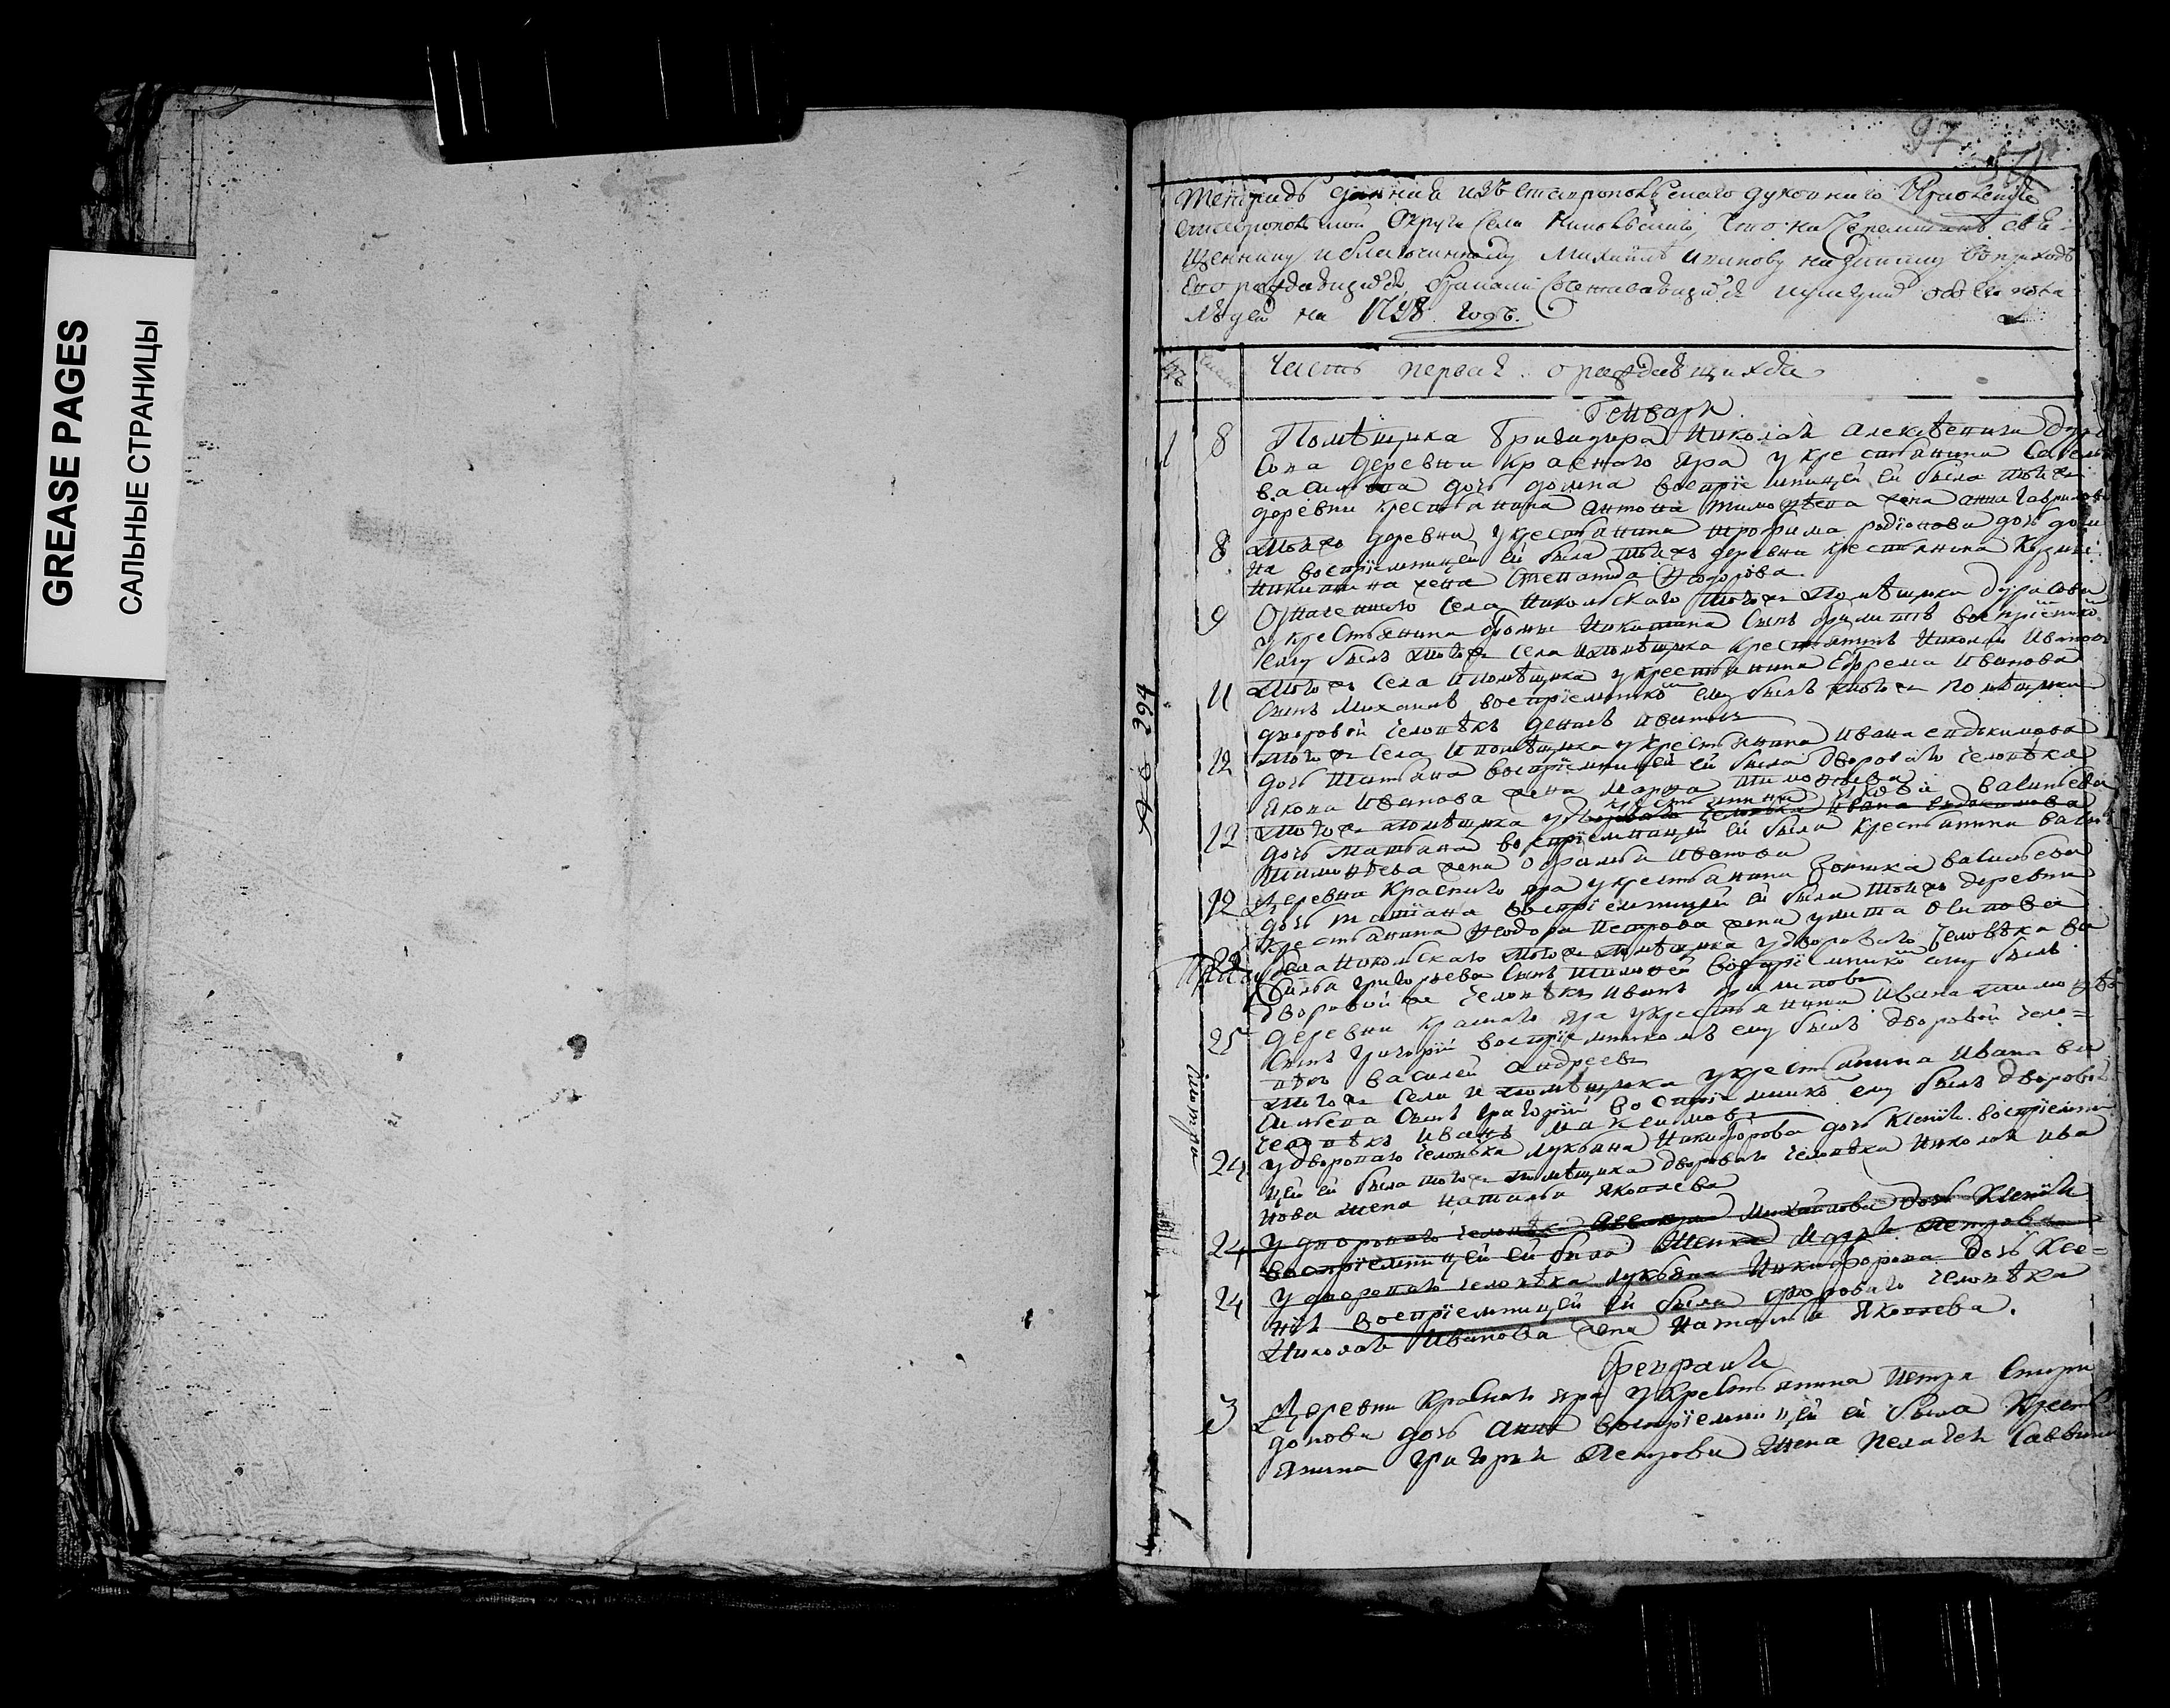 GREASE PAGES
САЛЬНЫЕ СТРАНИЦЫ
97
Тетрадь данная изъ Ставропольскаго духовнаго Правленїя
Ставропольской Округи села Никольскаго, что на Черемшанѣ свѧ
щеннику и благочинному Михаилу Иванову на записку въ приходѣ
его раждающихсѧ, бракомъ сочетавающихсѧ
на 1798 годъ.
Часть первая о раждающихсѧ
Генварь
1 8 Помѣщика бригадира Николаѧ Алексѣевича Дура
сова деревни Краснаго Яра у крестьянина Савелья
Васильева дочь Домна воспрїемницей ей была тойже
деревни крестьянина Антона Тимоѳѣева жена Анна Гаврилова
8 тойже деревни у крестьянина Трофима Родїонова дочь Дом
на воспрїемницей ей была тойже деревни крестьянина Кузмы
Никитина жена Степанида Ѳедорова
9 Означеннаго села Никольскаго тогоже помѣщика Дурасова
у крестьянина Фомы Никитина сынъ Филиппъ воспрїемнико
ему былъ тогоже села и помѣщика крестьянинъ Николай Иванов
11 тогоже села и помѣщика у крестьянина Ефрема Иванова
сынъ Михаилъ воспрїемнико ему былъ тогоже помѣщика
дворовой человѣкъ Данилъ Иванов
12 тогоже села и помѣщика у крестьянина Ивана Евдокимова
дочь Татьяна воспрїемницей ей была двороваго человѣка
Якова Иванова жена Марѳа Тимоѳѣева
крестьянина Якова Васильева
12 тогоже помѣщика у двороваго человѣка Ивана Евдокимова
дочь Татьяна воспрїемницей ей была крестьянина Васил
Тимоѳѣева жена Ефимья Иванова
12 Деревни Краснаго Яра у крестьянина Васильева
дочь Татїана воспрїемницей ей была тойже деревни
крестьянина Ѳеодора Петрова жена Улита Осипова
22 Села Никольскаго тогоже помѣщика у двороваго человѣка Ва
силья Григорьева сынъ Тимоѳей воспрїемнико ему былъ
дворовой же человѣкъ Иванъ Филипов
25 Деревни Краснаго Яра у крестьянина Ивана Тимоѳѣе
сынъ Григорїй воспрїемникомъ ему былъ дворовой чело=
вѣкъ Василей Андреевъ
тогоже села и помѣщика у крестьянина Ивана Ва
сильева сынъ Григорїй воспрїемнико ему былъ дворовой
человѣкъ Иванъ Максимовъ
24 у двороваго человѣка Лукьяна Никифорова дочь Ксенїѧ воспрїемни
цей ей была тогоже помѣщика двороваго человѣка Николаѧ Ива
нова жена Наталья Яковлева
24 у двороваго человѣка Михайлова дочь Ксенїѧ
воспрїемницей ей была Петрова
24 у двороваго человѣка Лукьяна Никифорова дочь Ксе=
нїѧ воспрїемницей ей была двороваго человѣка
Николаѧ Иванова жена Наталья Яковлева.
Февраль
3 Деревни Краснаго Яра у крестьянина Петра Спири
донова дочь Анна воспрїемницей ей была крест
янина Григорья Петрова жена Пелагеѧ Саввина
1